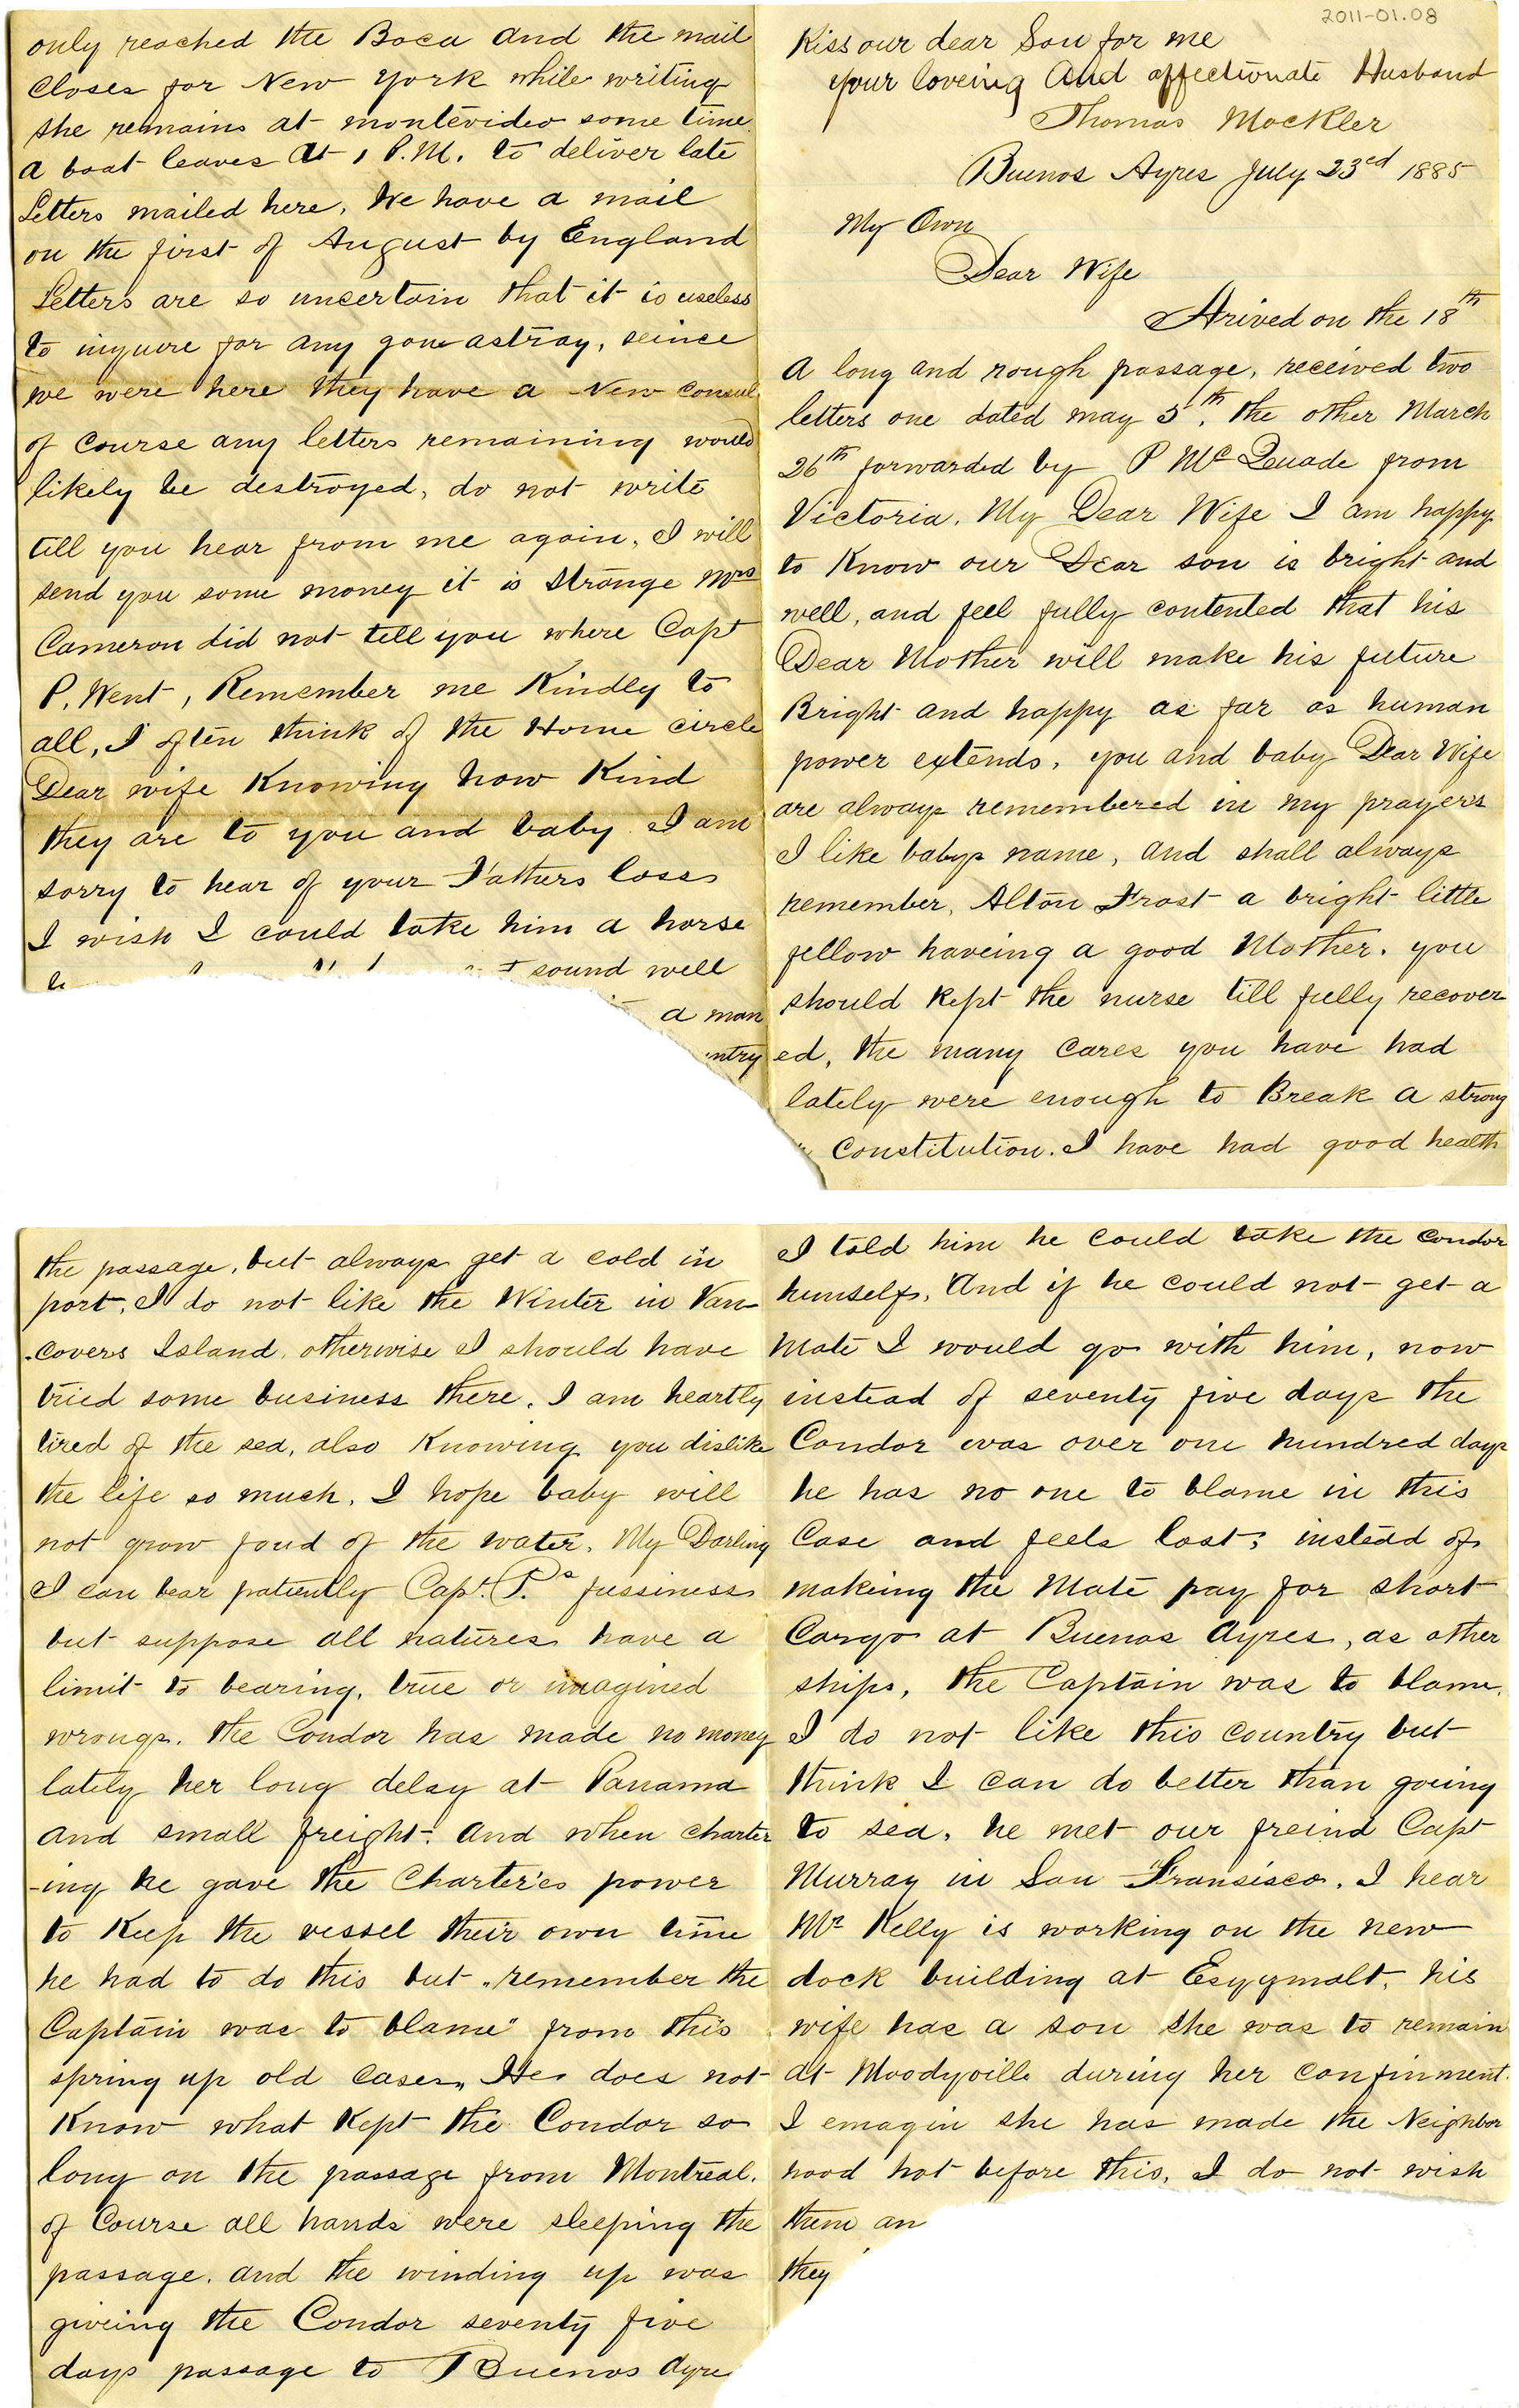 2011-01.08
Kiss our dear Son for me
your loveing And affectionate Husband
Thomas Mockler
Buenos Ayres July 23ed 1885
My Own
Dear Wife
Arived on the 18th
a long and rough passage, received two
letters one dated may 5th, the other March
26th forwarded by P McQuade from
Victoria. My Dear Wife I am happy
to Know our Dear son is bright and
well, and feel fully contented that his
Dear Mother will make his future
Bright and happy as far as human
power extends, you and baby Dear Wife
are always remembered in my prayers
I like babys name, and shall always
remember, Alton Frost a bright little
fellow haveing a good Mother. you
should kept the nurse till fully recover
ed, the many cares you have had
lately were enough to Break a strong
constitution. I have had good health
the passage, but always get a cold in
port. I do not like the Winter in Van-
covers Island, otherwise I should have
tried some business there. I am heartly
tired of the sea, also Knowing you dislike
the life so much. I hope baby will
not grow fond of the water. My Darling
I can bear patiently Capt. P.s fussiness
but suppose all natures have a
limit to bearing, true or imagined
wrongs. the Condor has made no money
lately her long delay at Panama
and small freight. and when charter
-ing he gave the Charteres power
to Keep the vessel their own time
he had to do this but "remember the
Captain was to blame" from this
spring up old cases, He does not
Know what Kept the Condor so
long on the passage from Montreal.
of Course all hands were sleeping the
passage. and the winding up was
giveing the Condor seventy five
days passage to Buenos Ayre
I told him he could take the Condor
himself, And if he could not get a
Mate I would go with him, now
instead of seventy five days the
Condor was over one hundred days
he has no one to blame in this
Case and feels lost, instead of
makeing the Mate pay for short
Cargo at Buenos Ayres, as other
ships, the Captain was to blame.
I do not like this country but
think I can do better than going
to sea, he met our freind Capt
Murray in San Fransisco, I hear
Mr Kelly is working on the new
dock building at Esqymalt, his
wife has a son she was to remain
at Moodyville during her confinment.
I emagin she has made the Neighbor
hood hot before this, I do not wish
them an
they
only reached the Boca and the mail
Closes for New York while writing
she remains at montevideo some time.
a boat leaves at 1 P.M. to deliver late
Letters mailed here, We have a mail
on the first of August by England
Letters are so uncertain that it is useless
to inquire for any gone astray, seince
we were here they have a New Consul
of course any letters remaining would
likely be destroyed, do not write
till you hear from me again, I will
send you some money it is strange Mrs
Cameron did not tell you where Capt
P. Went, Remember me Kindly to
all, I often think of the Home circle
Dear wife Knowing how Kind
they are to you and baby. I am
sorry to hear of your Fathers loss
I wish I could take him a horse
sound well
a man